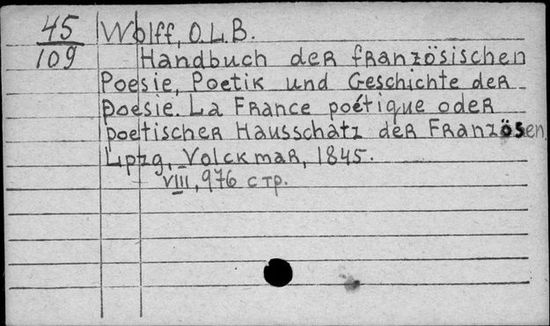 45 Wolff, O.L.B.
109 Handbuch der französischen
Poesie, Poetik und Geschichte der
Poesie. La France poétique oder
poetischer Hausschatz der Französen
Lptzg, Volckmar, 1845.
VIII, 976 стр.